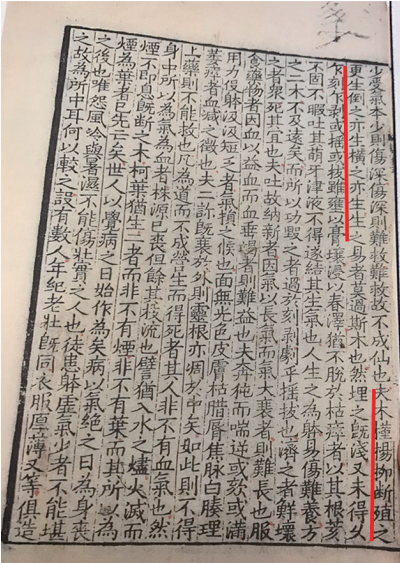 少愛氣本少則傷深傷深則難救難救故不成仙也夫木槿楊柳斷殖之
更生倒之亦生橫之亦生生之易者莫過斯木也然埋之旣淺又未得久
乍刻乍剥或搖或拔雖壅以膏壤浸以春澤猶不脫於枯瘁者以其根荄
不固不暇吐其萌牙津液不得遂結其生氣也人生之為躰易傷難養方
之二木不及遠矣而所以攻毀之者過於刻剥劇乎搖拔也濟之者鮮壞
之者衆死其宜也夫吐故納新者因氣以長氣而氣大衰者則難長也服
食藥物者因血以益血而血垂竭者則難益也夫奔馳而喘逆或欬或滿
用力役躰汲汲短乏者氣損之候也面無光色皮膚枯腊脣焦脉白腠理
萎瘁者血減之徵也夫二証旣衰於外則靈根亦凋於中矣如此則不得
上藥則不能救也凡為道而不成營生而得死者其人非不有血氣也然
身中所以為氣為血者株源已喪但餘其枝流也譬猶入水之燼火滅而
煙不即息旣斷之木柯葉猶生二者而非不有煙非不有葉而其所以為
煙為葉者已先亡矣世人以覺病之日始作為矣病以氣絕之日為身喪
之後也唯怨風冷與暑濕不能傷壯實之人也徒患躰虛氣少者不能堪
之故為所中耳何以較之設有數人年紀老壯旣同衣服厚薄又等俱造